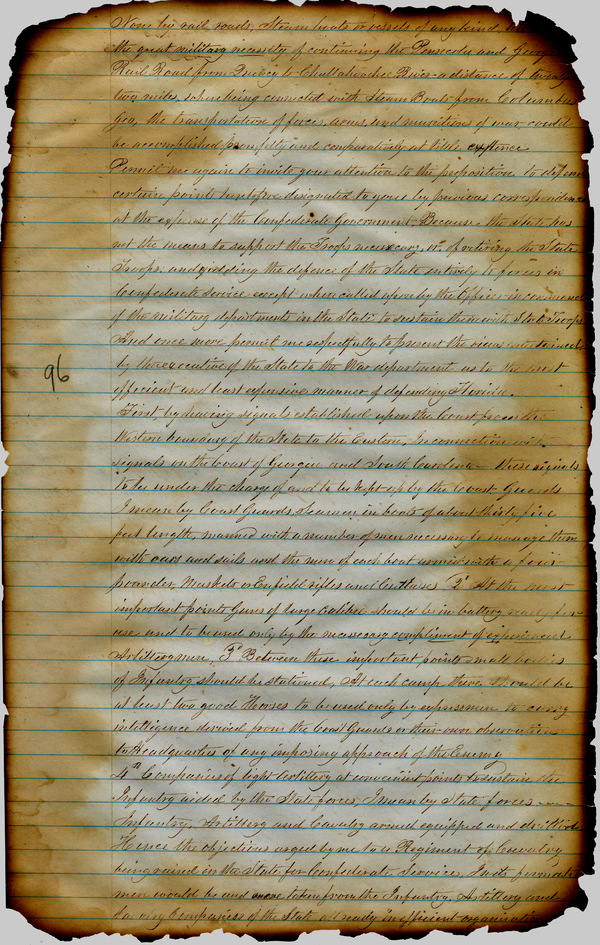 None by rail roads, Steam boats or vessels of any kind,
the great military necessity of continuing the Pensacola and Georgia
Rail Road from Quincy to Chattahoochee River a distance of twenty
two miles, where being connected with Steam Boats from Columbus
Geo, the transportation of forces, arms, and munitions of war could
be accomplished promptly and comparatively at little expense
Permit me again to invite your attention to the proposition to defend
certain points heretofore designated to you by previous correspondence
at the expense of the Confederate Government, Because the State has
not the means to support the Troops necessary, or of retiring the State
Troops, and yielding the defence of the State entirely to forces in
Confederate service except when called upon by the Officer in command
of the military department in the State to sustain them with State Troops
And once more permit me respectfully to present the views entertained
by the executive of the State to the War department as to the most
efficient and least expensive manner of defending Florida.
First by having signals established upon the Coast from the
Western boundary of the State to the Eastern, in connection with
signals on the Coast of Georgia and South Carolina - these signals
to be under the charge of and to be kept up by the Coast Guards
96
I mean by Coast Guards Seamen in boats of about thirty five
feet length, manned with a number of men necessary to manage them
with oars and sails and the men of each boat armed with a four
pounder, Muskets or Enfield rifles and Cutlass 2d At the most
important points Guns of large calibre should be in battery ready for
use and to be used only by the necessary compliment of experienced
Artillerymen, 3d Between these important points small bodies
of Infantry should be stationed, At each camp there should be
at least two good Horses to be used only by expressmen to carry
intelligence derived from the Coast Guards or their own observation
to Headquarters of any imposing approach of the Enemy
4th Companies of light Artillery at convenient points to sustain the
Infantry aided by the State forces, I mean by State forces
Infantry, Artillery and Cavalry armed equipped and drilled
Hence the objections urged by me to a Regiment of Cavalry
being raised in the State for Confederate Services,
men would be and were taken from the Infantry, Artillery and
Cavalry Companies of the State already in efficient organization